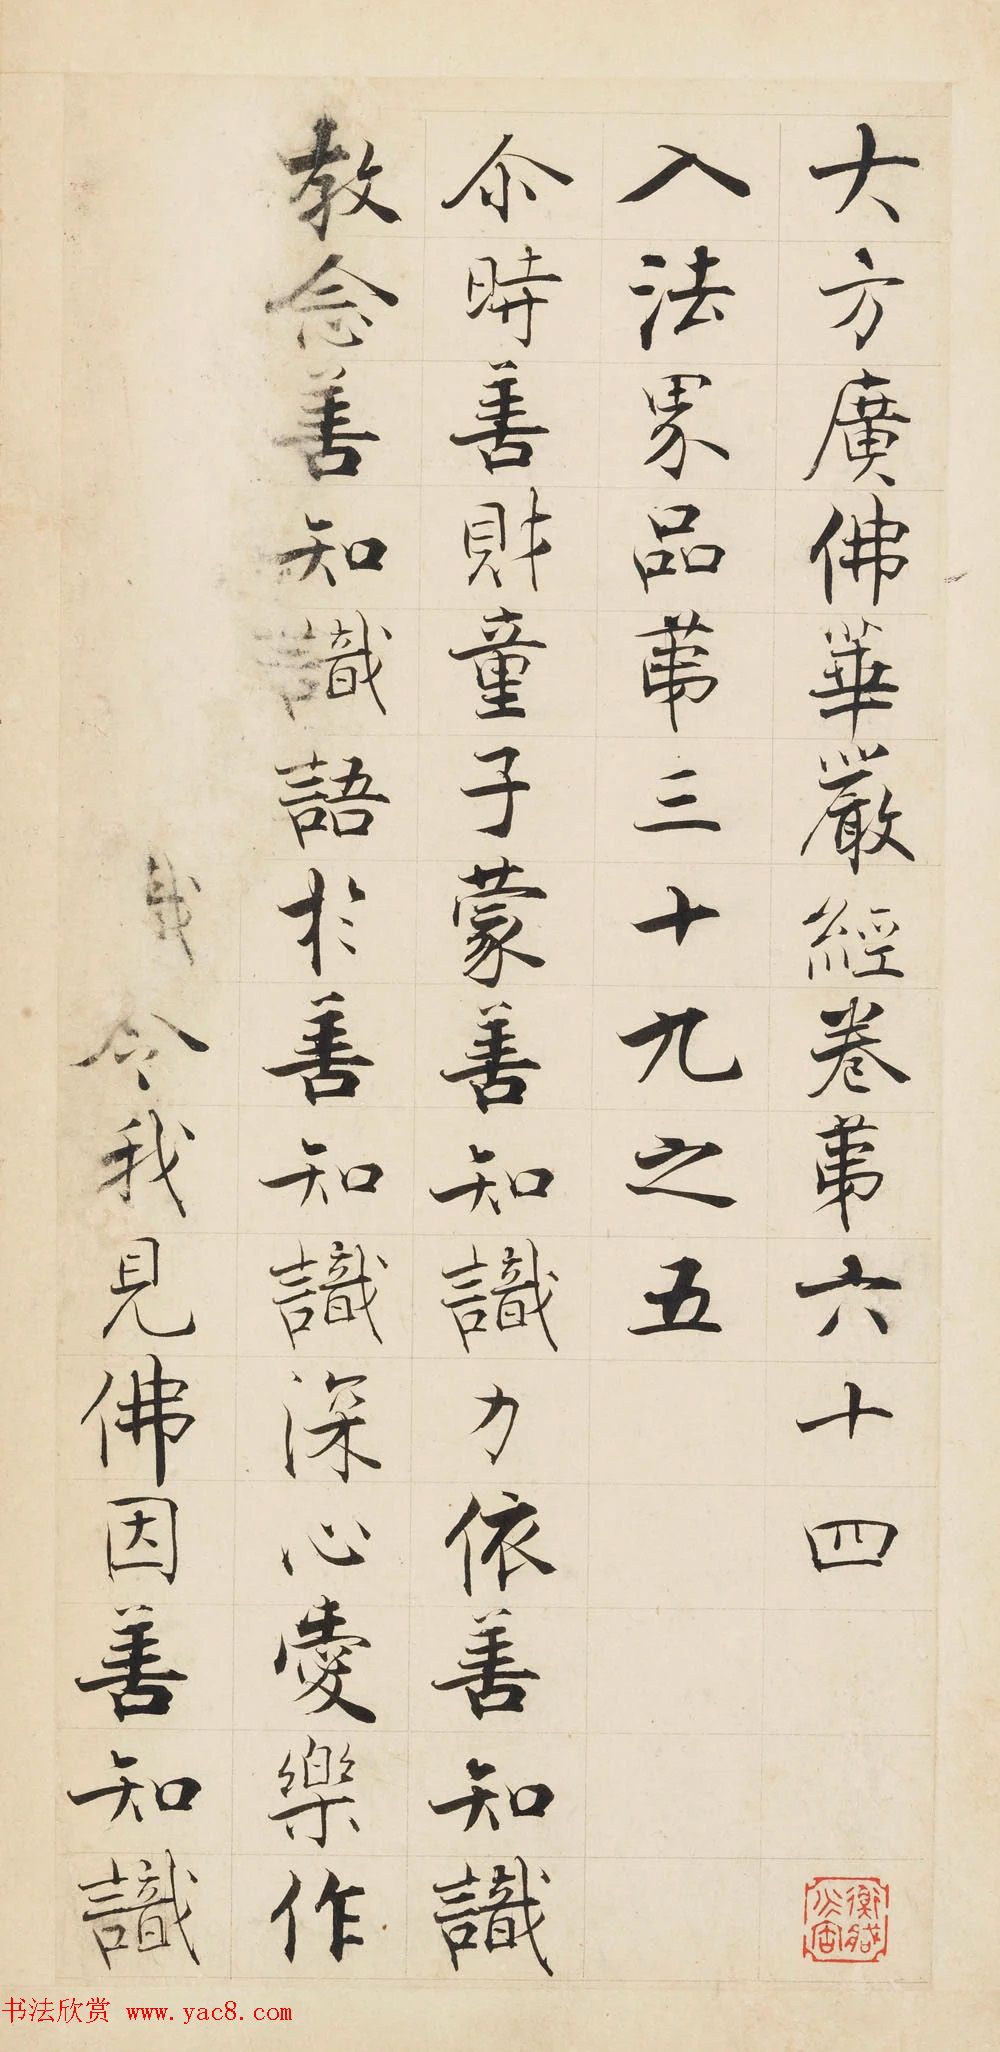 大方廣佛華嚴經卷苐六十四
入法界品苐三十九之五
尒時善財童子蒙善知識力依善知識
教念善知識語於善知識深心愛樂作
令我見佛因善知識
书法欣赏 www.yac8.com